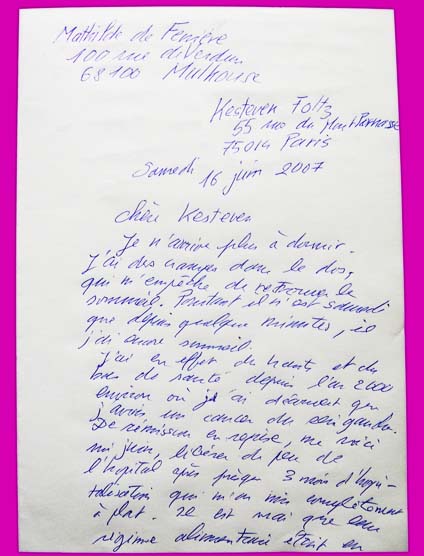 Mathilde de Ferrière
100 rue de Verdun
68100 Mulhouse
Kesteven Foltz
55 rue du Mont Parnasse
75014 Paris
Samedi 16 juin 2007
Chère Kesteven
Je n'arrive plus à dormir.
J'ai des crampes dans le dos,
qui m'empêche de retrouver le
sommeil. Pourtant il n'est samedi
que depuis quelques minutes, et
j'ai encore sommeil.
J'ai en effet des hauts et des
bas de santé depuis l'an 2000
environ où j'ai découvert que
j'avais un cancer du sein gauche.
De rémission en reprise, me voici
mi juin, libérée de peu de
l'hopital après presque 3 mois d'hospi-
talisation qui m'on mis complètement
à plat. Il est vrai que leur
régime alimentaire était en